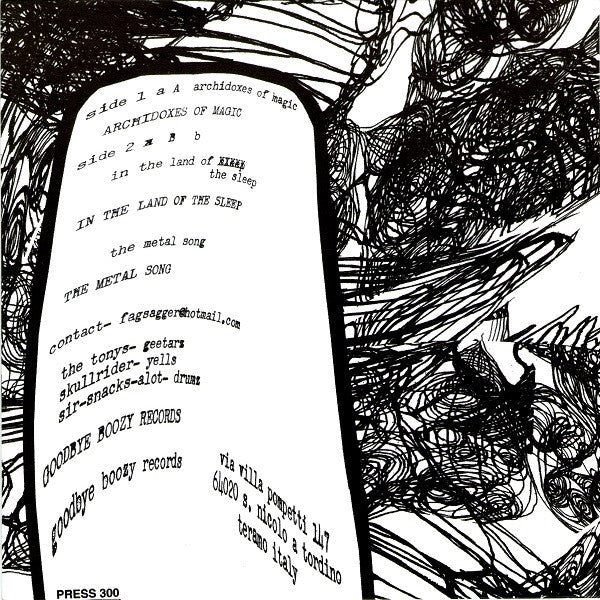 side 1 a A archidoxes of magic
ARCHIDOXES OF MAGIC
side 2 B b
in the land of
the sleep
IN THE LAND OF THE SLEEP
the metal song
THE METAL SONG
contact- fagsagger@hotmail.com
the tonys- geetarz
skullrider- yells
sir-snacks-alot- drumz
GOODBYE BOOZY RECORDS
goodbye boozy records
via villa pompetti 147
64020 s. nicolo a tordino
teramo italy
PRESS 300